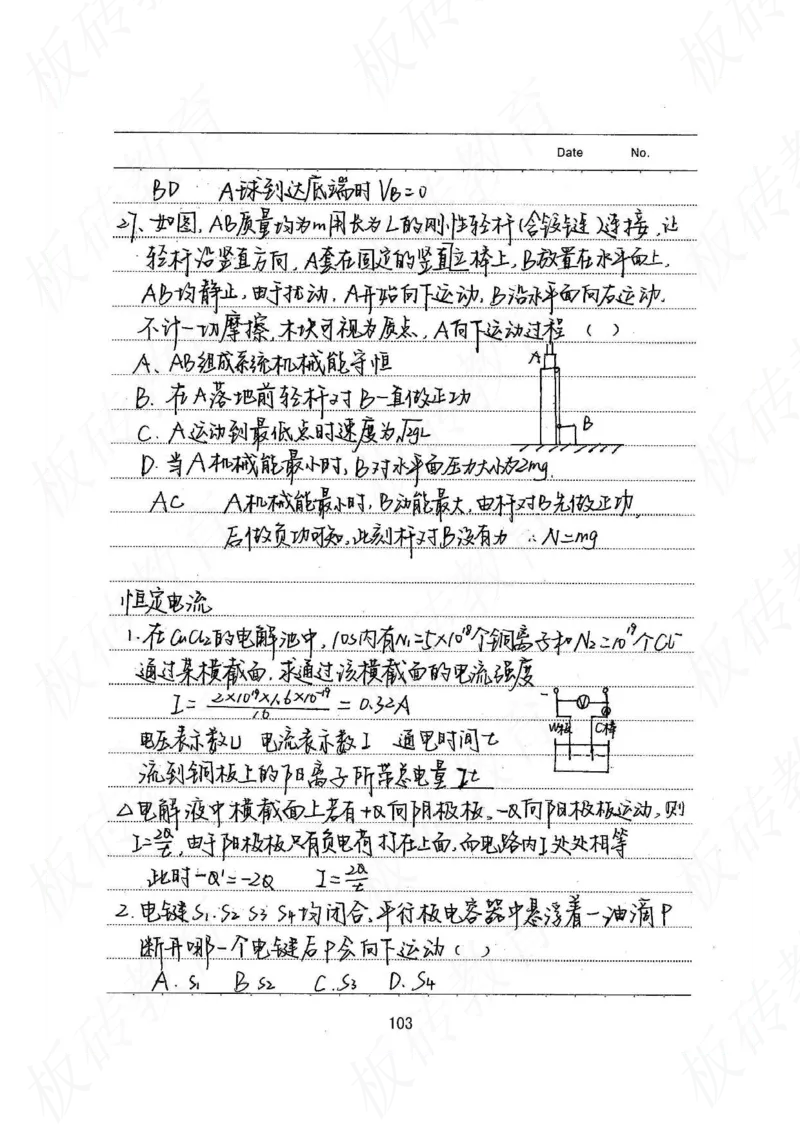 Date No.
BD A球到达底端时 VB=0
27、如图,AB质量均为m用长为L的刚性轻杆(含铰链)连接,让
轻杆沿竖直方向,A套在固定的竖直立棒上,B放置在水平面上,
AB均静止,由于扰动,A开始向下运动,B沿水平面向右运动.
不计一切摩擦,木块可视为质点,A向下运动过程 ( )
A、AB组成系统机械能守恒
A
B. 在A落地前轻杆对B一直做正功
C. A运动到最低点时速度为√2gL
B
D. 当A机械能最小时,B对水平面压力大小为2mg.
AC A机械能最小时,B动能最大,由杆对B先做正功,
后做负功可知,此刻杆对B没有力 ∴N=mg
恒定电流
1.在CuCl2的电解池中,10s内有N1=5×10^18个铜离子和N2=10^19个Cl-
通过某横截面,求通过该横截面的电流强度
I= 2×10^19×1.6×10^-19/10 = 0.32A
- V A
电压表示数U 电流表示数I 通电时间t
C棒
流到铜板上的阳离子所带总电量 It
△电解液中横截面上若有+Q向阴极板,-Q向阳极板运动,则
I=2Q/t,由于阳极板只有负电荷打在上面,而电路内I处处相等
此时-Q'=-2Q I=2Q/t
2.电键S1.S2 S3 S4均闭合,平行板电容器中悬浮着一油滴P
断开哪一个电键后P会向下运动( )
A. S1 B S2 C.S3 D.S4
103
板砖教育